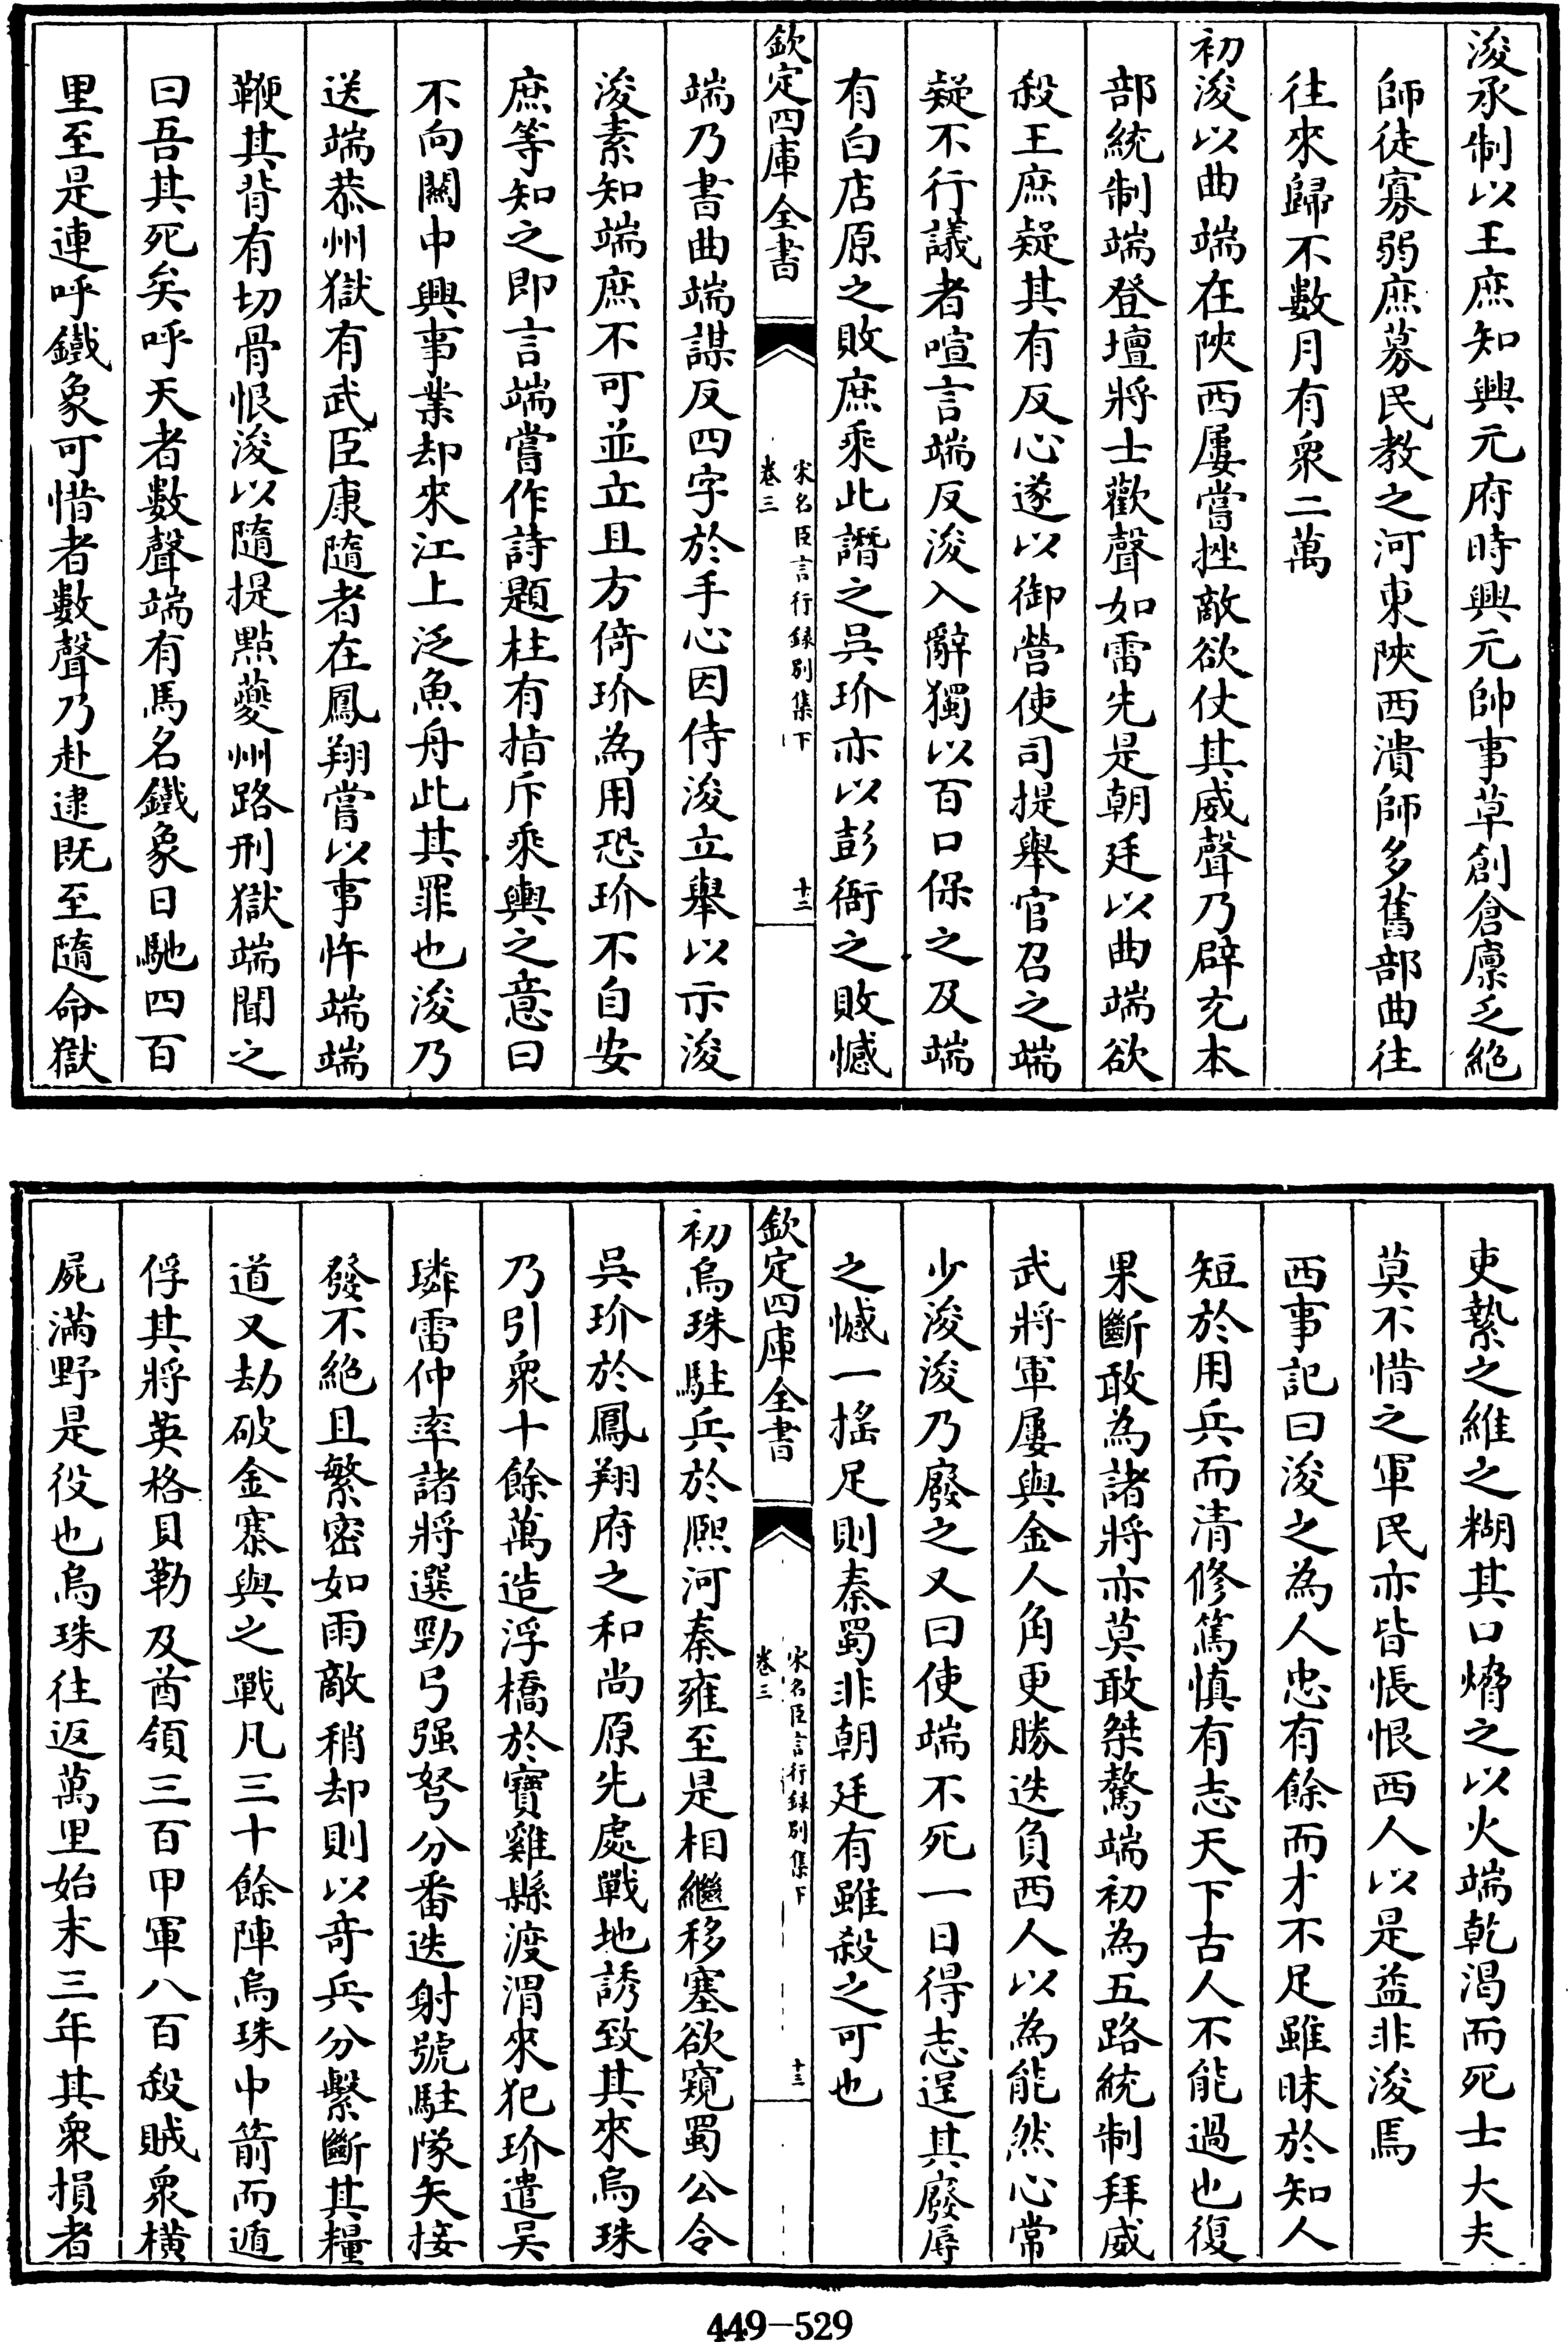 浚承制以王庶知興元府時興元帥事草創倉廩乏絶
師徒寡弱庶募民教之河東陜西潰師多舊部曲往
往來歸不數月有衆二萬
初浚以曲端在陜西屢嘗挫敵欲仗其威聲乃辟充本
部統制端登壇將士歡聲如雷先是朝廷以曲端欲
殺王庶疑其有反心遂以御營使司提舉官召之端
疑不行議者喧言端反浚入辭獨以百口保之及端
有白店原之敗庶乘此譖之吳玠亦以彭衙之敗憾
欽定四庫全書
宋名臣言行録别集下
卷三
十二
端乃書曲端謀反四字於手心因侍浚立舉以示浚
浚素知端庶不可並立且方倚玠為用恐玠不自安
庶等知之即言端嘗作詩題柱有指斥乘輿之意曰
不向關中興事業却來江上泛魚舟此其罪也浚乃
送端恭州獄有武臣康隨者在鳳翔嘗以事忤端端
鞭其背有切骨恨浚以隨提點夔州路刑獄端聞之
曰吾其死矣呼天者數聲端有馬名鐵象日馳四百
里至是連呼鐵象可惜者數聲乃赴逮既至隨命獄
吏縶之維之糊其口熁之以火端乾渴而死士大夫
莫不惜之軍民亦皆悵恨西人以是益非浚焉
西事記曰浚之為人忠有餘而才不足雖昧於知人
短於用兵而清修篤慎有志天下古人不能過也復
果斷敢為諸將亦莫敢桀驁端初為五路統制拜威
武將軍屢與金人角更勝迭負西人以為能然心常
少浚浚乃廢之又曰使端不死一日得志逞其廢辱
之憾一搖足則秦蜀非朝廷有雖殺之可也
欽定四庫全書
宋名臣言行録别集下
卷三
十三
初烏珠駐兵於熙河秦雍至是相繼移塞欲窺蜀公令
吳玠於鳳翔府之和尚原先處戰地誘致其來烏珠
乃引衆十餘萬造浮橋於寶雞縣渡渭來犯玠遣吳
璘雷仲率諸將選勁弓强弩分番迭射號駐隊矢接
發不絶且繁密如雨敵稍却則以奇兵分繫斷其糧
道又劫破金寨與之戰凡三十餘陣烏珠中箭而遁
俘其將英格貝勒及酋領三百甲軍八百殺賊衆橫
屍滿野是役也烏珠往返萬里始末三年其衆損者
449—529